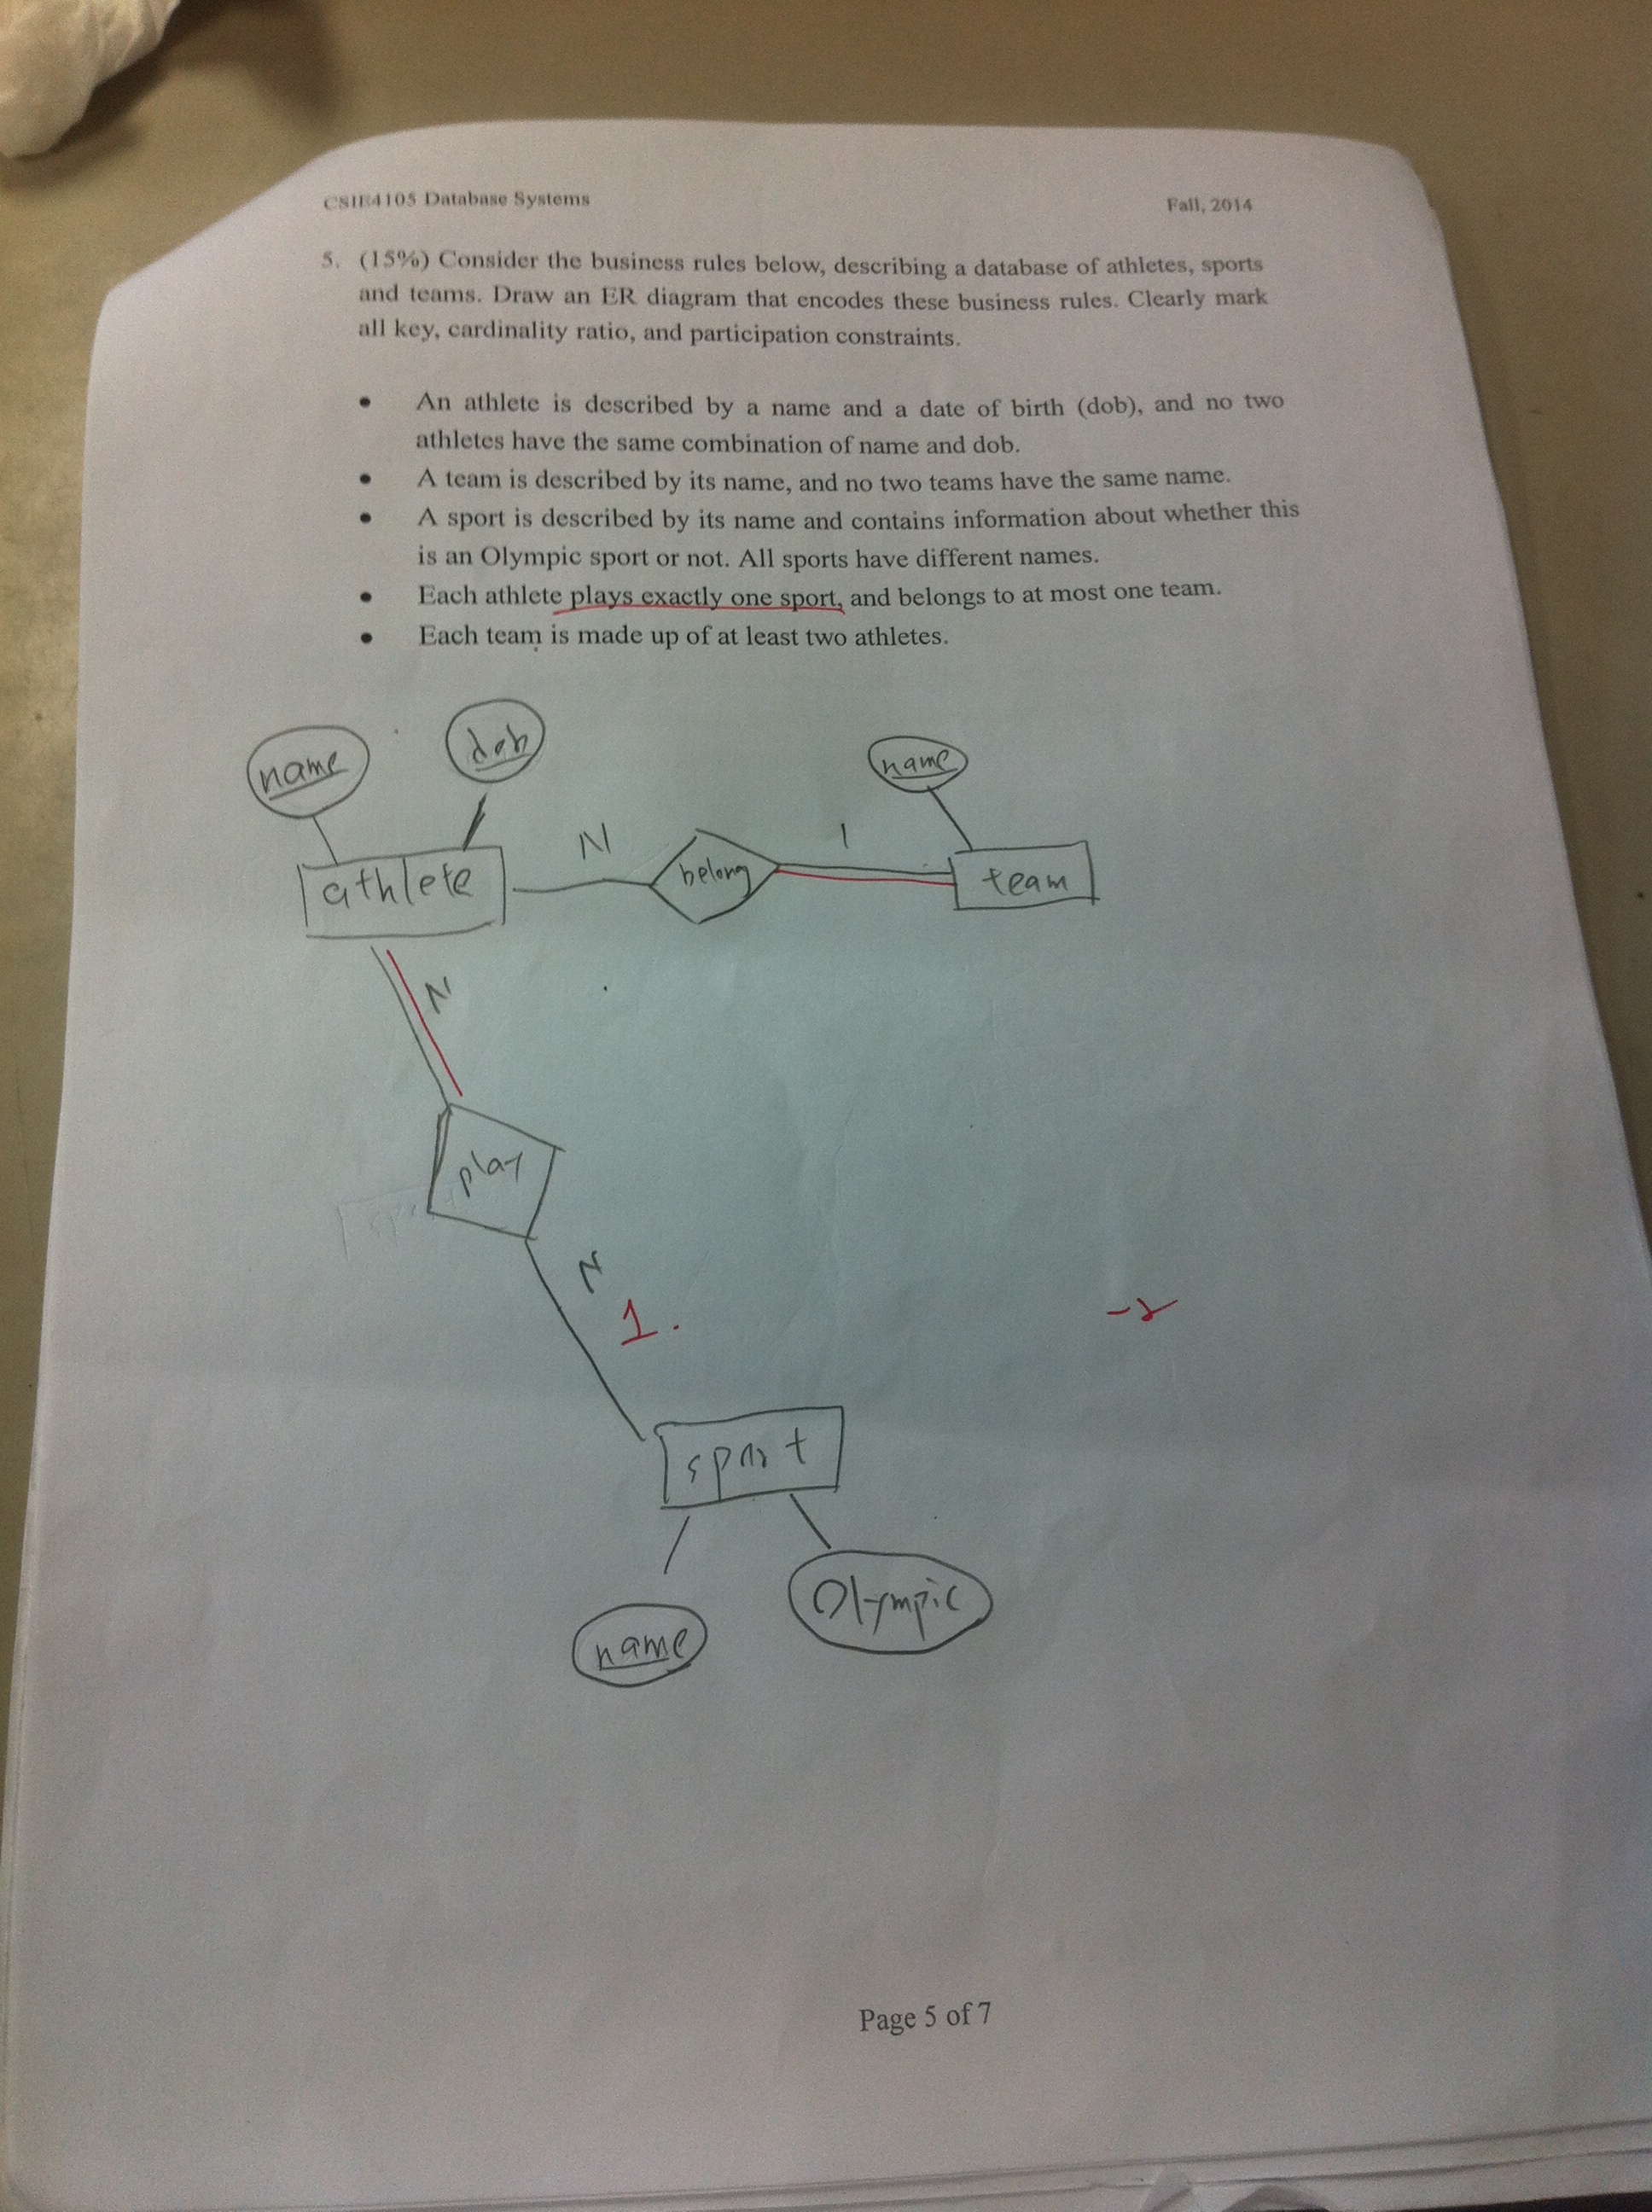 CSIE4105 Database Systems Fall, 2014
5. (15%) Consider the business rules below, describing a database of athletes, sports
and teams. Draw an ER diagram that encodes these business rules. Clearly mark
all key, cardinality ratio, and participation constraints.
• An athlete is described by a name and a date of birth (dob), and no two
athletes have the same combination of name and dob.
• A team is described by its name, and no two teams have the same name.
• A sport is described by its name and contains information about whether this
is an Olympic sport or not. All sports have different names.
• Each athlete plays exactly one sport, and belongs to at most one team.
• Each team is made up of at least two athletes.
name dob name
athlete N belong 1 team
N
play
N
1.
-2
sport
name Olympic
Page 5 of 7